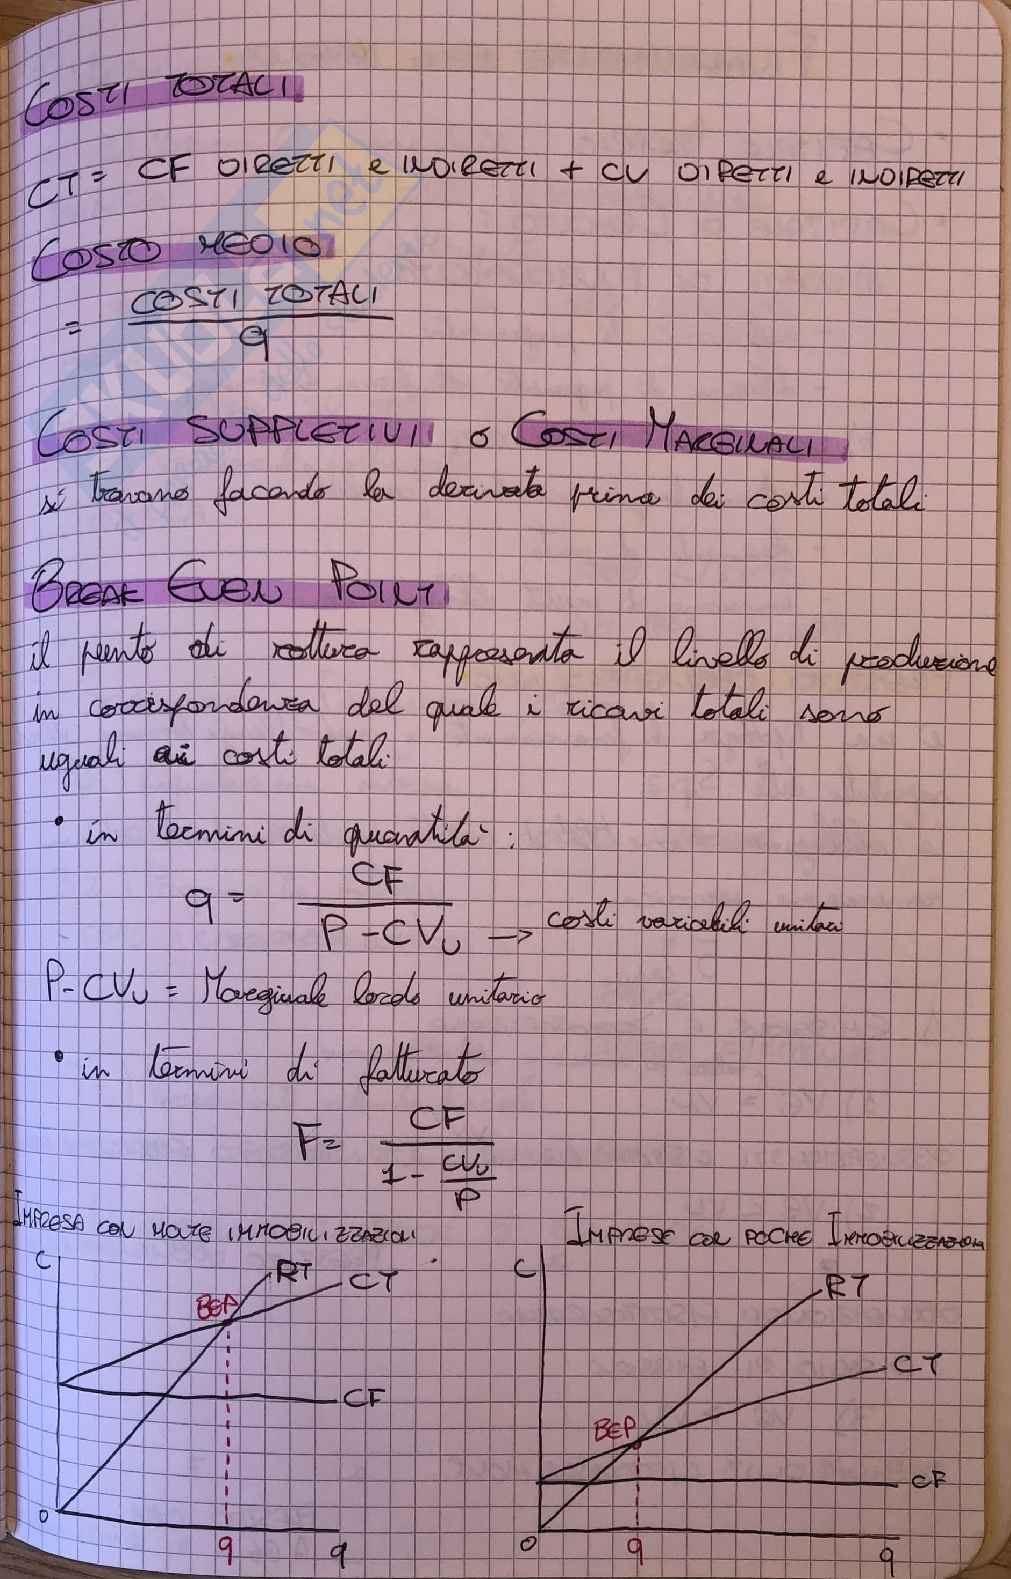 COSTI TOTALI
CT = CF DIRETTI e INDIRETTI + CV DIRETTI e INDIRETTI
COSTO MEDIO
= COSTI TOTALI
q
COSTI SUPPLETIVI o COSTI MARGINALI
si trovano facendo la derivata prima dei costi totali
BREAK EVEN POINT
il punto di rottura rappresenta il livello di produzione
in corrispondenza del quale i ricavi totali sono
uguali ai costi totali
• in termini di quantità:
q = CF
P - CVu → costi variabili unitari
P - CVu = Marginale lordo unitario
• in termini di fatturato
F = CF
1 - CVu
P
IMPRESA CON MOLTE IMMOBILIZZAZIONI
IMPRESE CON POCHE IMMOBILIZZAZIONI
C RT CT
BEP
CF
0 q q
C RT
CT
BEP
CF
0 q q